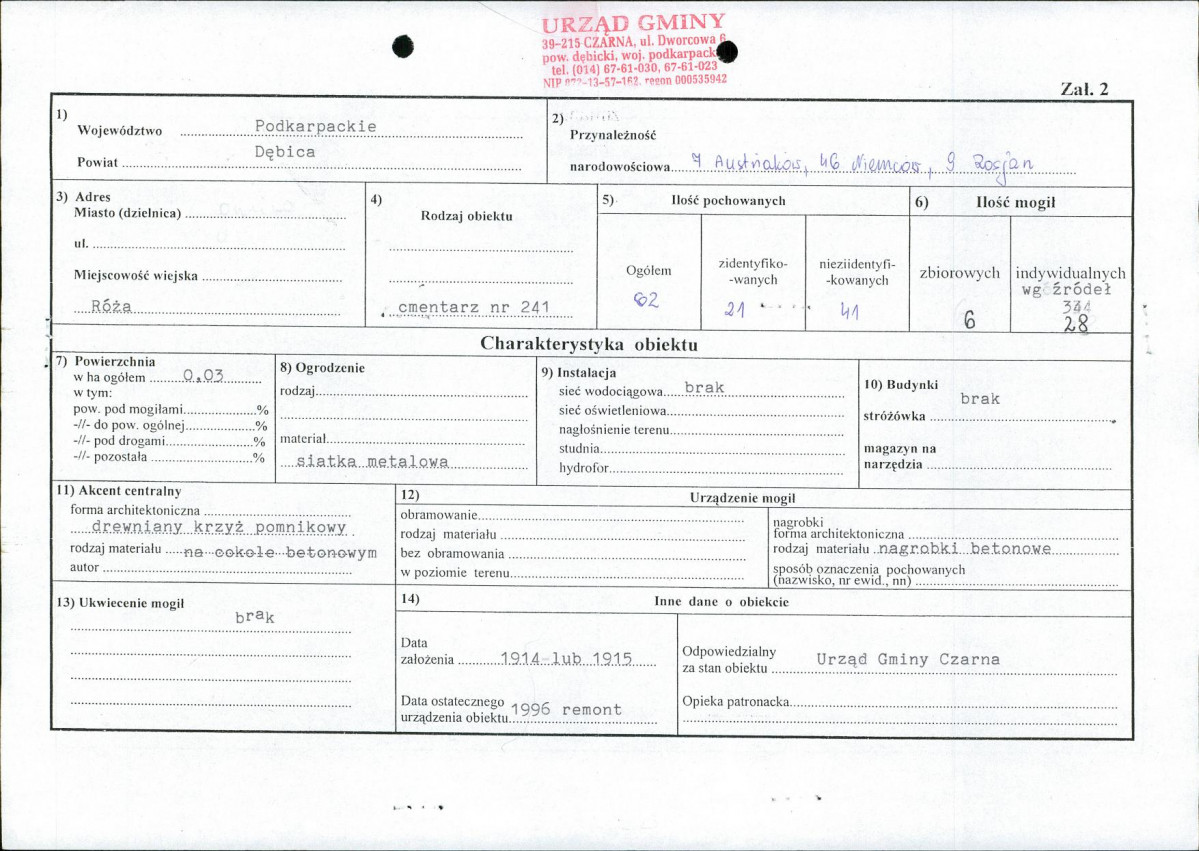 URZĄD GMINY
39-215 CZARNA, ul. Dworcowa 6
pow. dębicki, woj. podkarpack
tel. (014) 67-61-030, 67-61-023
NIP 872-13-57-162, regon 000535942
Zał. 2
1)
Województwo Podkarpackie
Powiat Dębica
2)
Przynależność
narodowościowa 7 Austriaków, 46 Niemców, 9 Rosjan
3) Adres
Miasto (dzielnica)
ul.
Miejscowość wiejska
Róża
4)
Rodzaj obiektu
cmentarz nr 241
5) Ilość pochowanych
Ogółem
62
zidentyfiko-
-wanych
21
nieziidentyfi-
-kowanych
41
6) Ilość mogił
zbiorowych
6
indywidualnych
wg źródeł
28
Charakterystyka obiektu
7) Powierzchnia
w ha ogółem 0,03
w tym:
pow. pod mogiłami %
-//- do pow. ogólnej %
-//- pod drogami %
-//- pozostała %
8) Ogrodzenie
rodzaj
materiał
siatka metalowa
9) Instalacja
sieć wodociągowa brak
sieć oświetleniowa
nagłośnienie terenu
studnia
hydrofor
10) Budynki
brak
stróżówka
magazyn na
narzędzia
11) Akcent centralny
forma architektoniczna
drewniany krzyż pomnikowy
rodzaj materiału na cokole betonowym
autor
12) Urządzenie mogił
obramowanie
rodzaj materiału
bez obramowania
w poziomie terenu
nagrobki
forma architektoniczna
rodzaj materiału nagrobki betonowe
sposób oznaczenia pochowanych
(nazwisko, nr ewid., nn)
13) Ukwiecenie mogił
brak
14) Inne dane o obiekcie
Data
założenia 1914 lub 1915
Data ostatecznego
urządzenia obiektu 1996 remont
Odpowiedzialny
za stan obiektu Urząd Gminy Czarna
Opieka patronacka